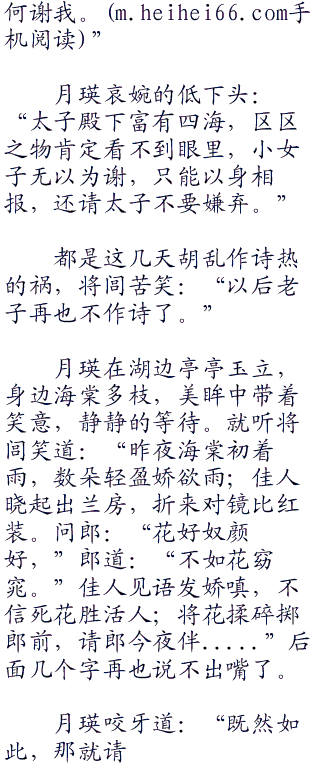 何谢我。(m.heihei66.com手
机阅读)”
月瑛哀婉的低下头：
“太子殿下富有四海，区区
之物肯定看不到眼里，小女
子无以为谢，只能以身相
报，还请太子不要嫌弃。”
都是这几天胡乱作诗热
的祸，将闾苦笑：“以后老
子再也不作诗了。”
月瑛在湖边亭亭玉立，
身边海棠多枝，美眸中带着
笑意，静静的等待。就听将
闾笑道：“昨夜海棠初着
雨，数朵轻盈娇欲雨；佳人
晓起出兰房，折来对镜比红
装。问郎：“花好奴颜
好，”郎道：“不如花窈
窕。”佳人见语发娇嗔，不
信死花胜活人；将花揉碎掷
郎前，请郎今夜伴.....”后
面几个字再也说不出嘴了。
月瑛咬牙道：“既然如
此，那就请